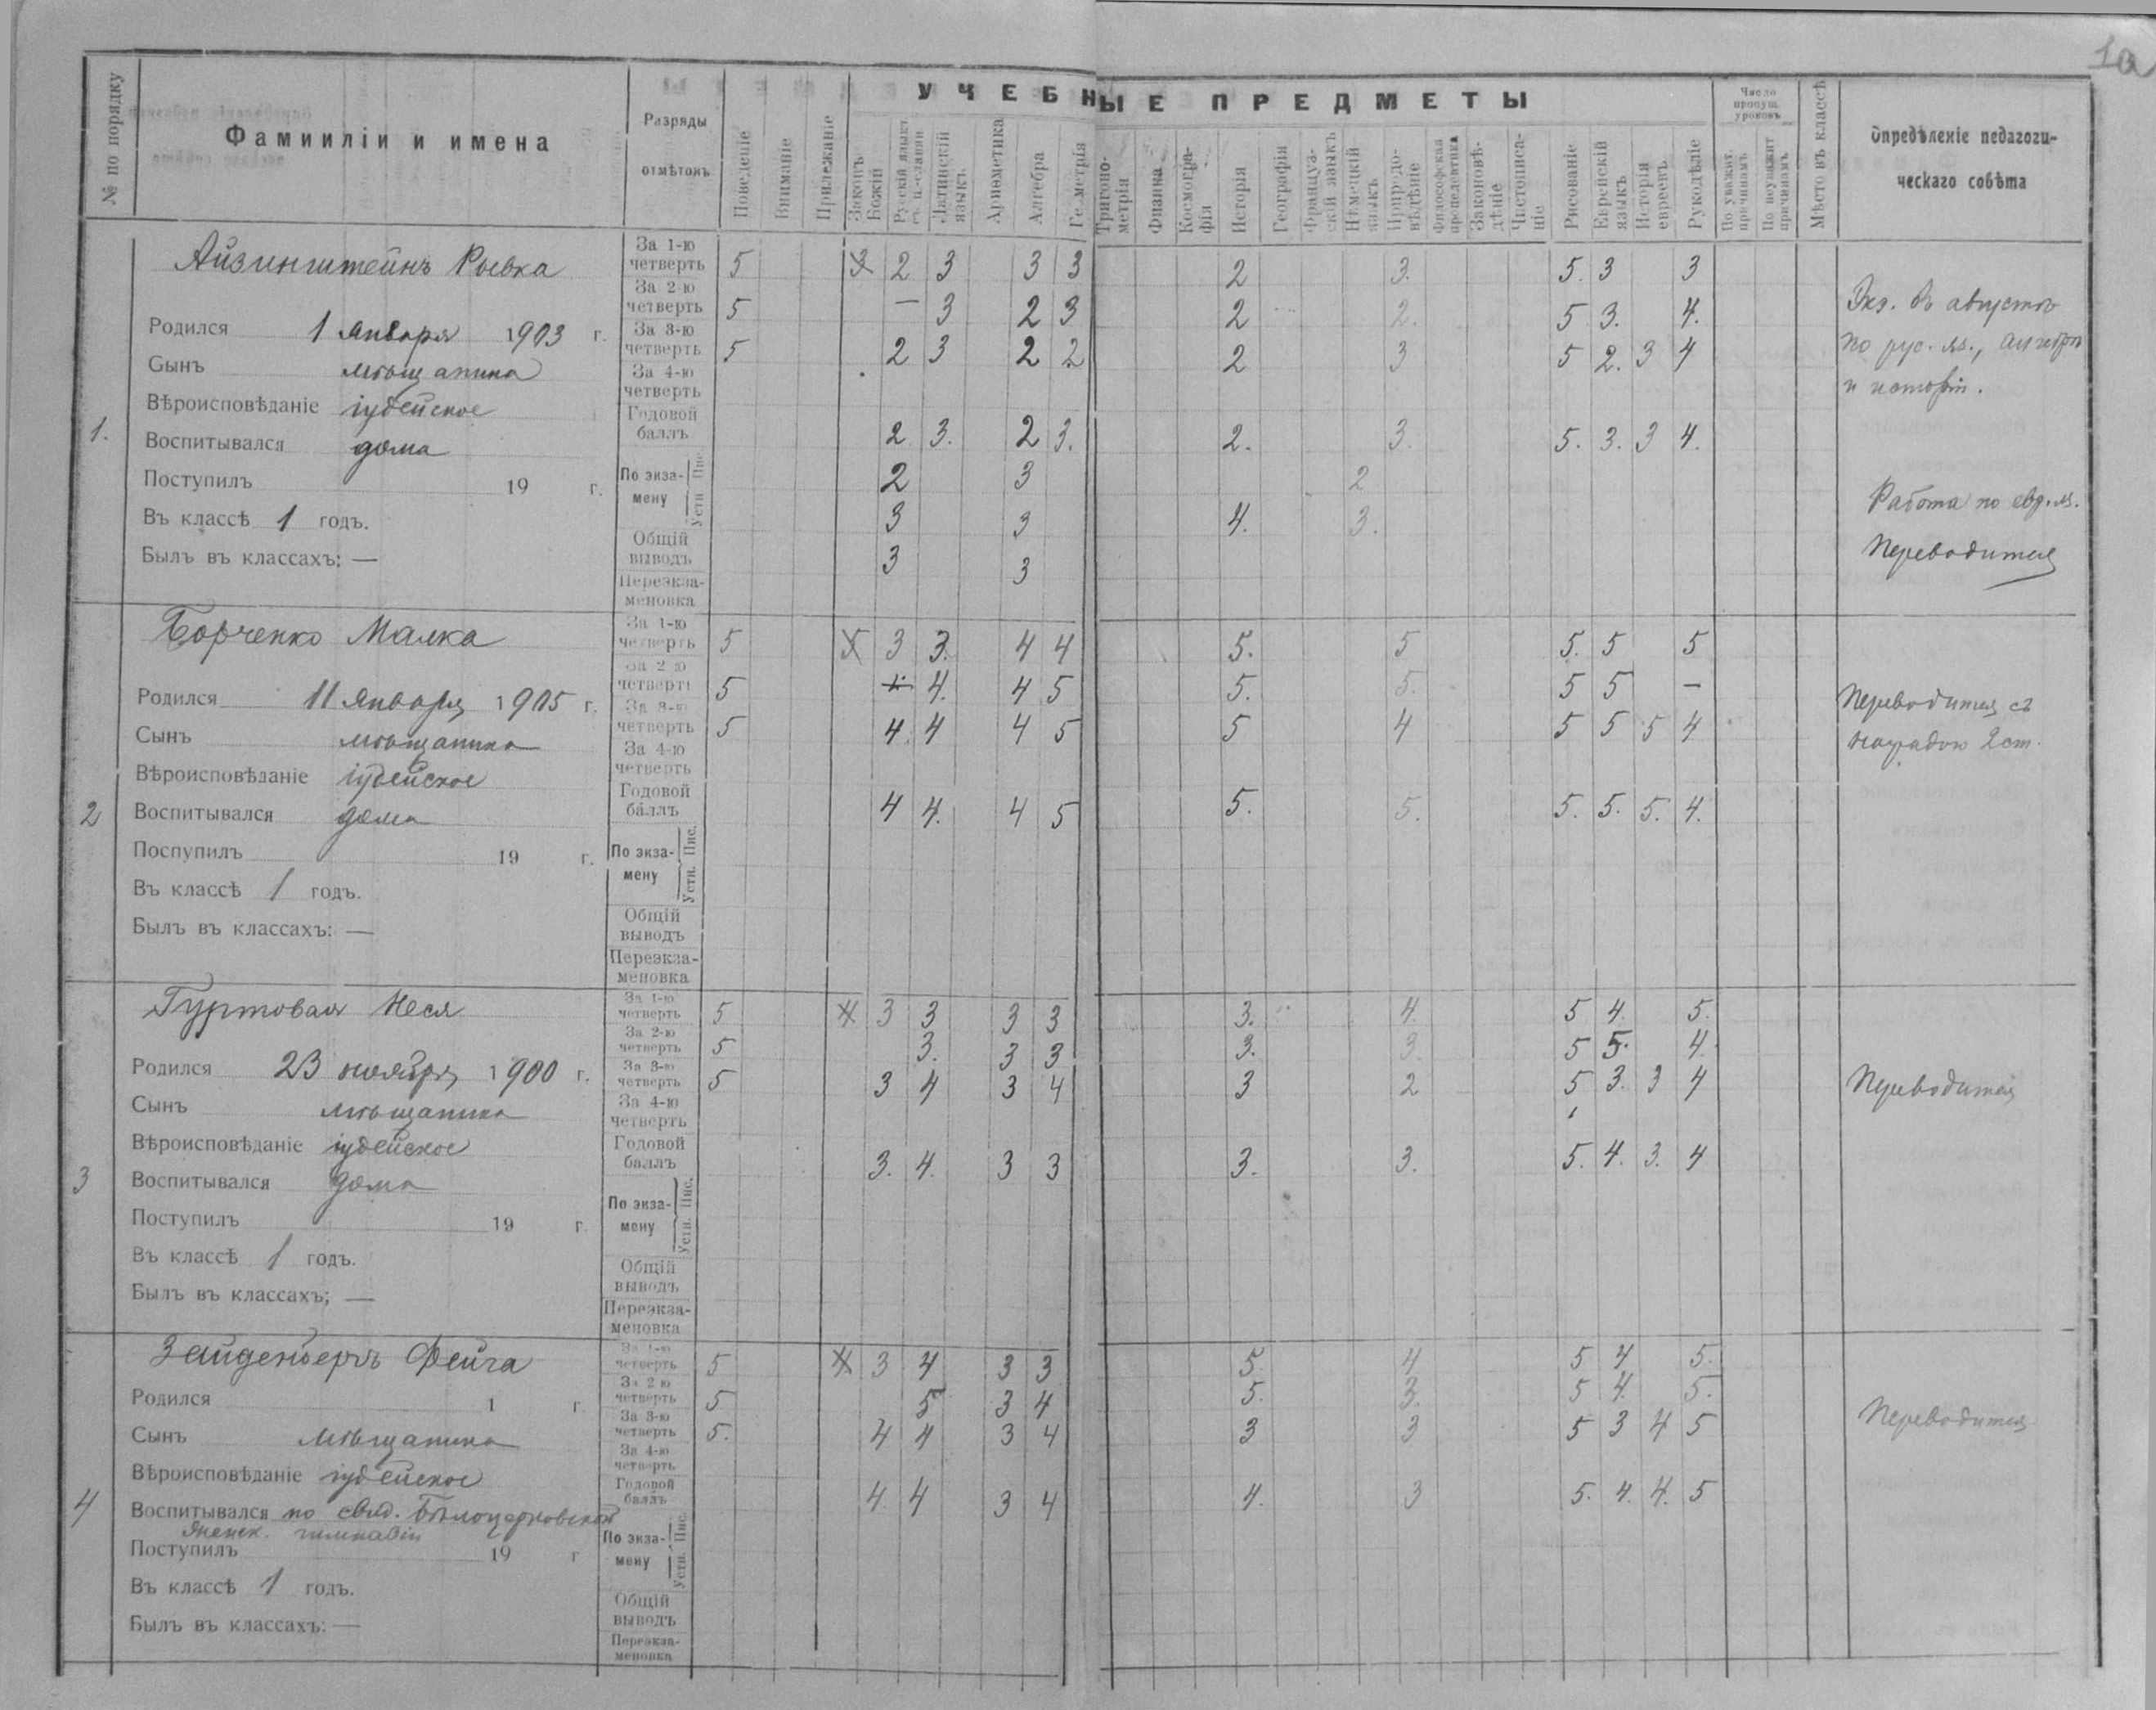 1а
№ по порядку
Фамииліи и имена
Разряды
отмѣтокъ
УЧЕБНЫЕ ПРЕДМЕТЫ
Поведеніе
Вниманіе
Прилежаніе
Законъ Божій
Русскій языкъ съ ц.-славян
Латинскій языкъ
Ариѳметика
Алгебра
Геометрія
Тригоно-метрія
Физика
Космогра-фія
Исторія
Географія
Француз-скій языкъ
Нѣмецкій языкъ
Природо-вѣдѣніе
Философская пропедевтика
Законовѣ-дѣніе
Чистописа-ніе
Рисованіе
Еврейскій языкъ
Исторія евреевъ
Рукодѣліе
Число пропущ. уроковъ
По уважит. причинамъ
По неуважит причинамъ
Мѣсто въ классѣ
Опредѣленіе педагоги-
ческаго совѣта
1.
Айзинштейнъ Рывка
Родился 1 января 1903 г.
Сынъ мѣщанина
Вѣроисповѣданіе іудейское
Воспитывался дома
Поступилъ 19 г.
Въ классѣ 1 годъ.
Былъ въ классахъ: —
За 1-ю четверть 5 3 2 3 3 3 2 3. 5. 3 3
За 2-ю четверть 5 — 3 2 3 2 2. 5 3. 4.
За 3-ю четверть 5 2 3 2 2 2 3 5 2. 3 4
За 4-ю четверть
Годовой баллъ 2 3. 2 3. 2. 3. 5. 3. 3 4.
По экза-мену Пис. 2 3 2
Устн 3 3 4. 3.
Общій выводъ 3 3
Переэкза-меновка
Экз. въ августѣ
по рус. яз., алгебрѣ
и исторіи.
Работа по евр. яз.
Переводится
2
Борченко Малка
Родился 11 января 1905 г.
Сынъ мѣщанина
Вѣроисповѣданіе іудейское
Воспитывался дома
Поспупилъ 19 г.
Въ классѣ 1 годъ.
Былъ въ классахъ: —
За 1-ю четверть 5 3 3. 4 4 5. 5 5. 5 5
За 2-ю четверть 5 4. 4 5 5. 5. 5 5 —
За 3-ю четверть 5 4. 4 4 5 5 4 5 5 5 4
За 4-ю четверть
Годовой баллъ 4 4. 4 5 5. 5. 5. 5. 5. 4.
По экза-мену Устн. Пис.
Общій выводъ
Переэкза-меновка
Переводится съ
наградою 2 ст.
3
Гуртовая Неся
Родился 23 ноября 1900 г.
Сынъ мѣщанина
Вѣроисповѣданіе іудейское
Воспитывался дома
Поступилъ 19 г.
Въ классѣ 1 годъ.
Былъ въ классахъ; —
За 1-ю четверть 5 3 3 3 3 3. 4. 5 4. 5.
За 2-ю четверть 5 3. 3 3 3. 3. 5 5. 4.
За 3-ю четверть 5 3 4 3 4 3 2 5 3. 3 4
За 4-ю четверть
Годовой баллъ 3. 4. 3 3 3. 3. 5. 4. 3. 4
По экза-мену Устн. Пис.
Общій выводъ
Переэкза-меновка
Переводится
4
Зайденбергъ Фейга
Родился 1 г.
Сынъ мѣщанина
Вѣроисповѣданіе іудейское
Воспитывался по свид. Бѣлоцерковской
женск. гимназіи
Поступилъ 19 г
Въ классѣ 1 годъ.
Былъ въ классахъ: —
За 1-ю четверть 5 3 4 3 3 5. 4 5 4 5.
За 2-ю четверть 5 5 3 4 5. 3. 5 4. 5.
За 3-ю четверть 5. 4 4 3 4 3 3 5 3 4 5
За 4-ю четверть
Годовой баллъ 4. 4 3 4 4. 3 5. 4. 4. 5
По экза-мену Устн. Пис.
Общій выводъ
Переэкза-меновка
Переводится